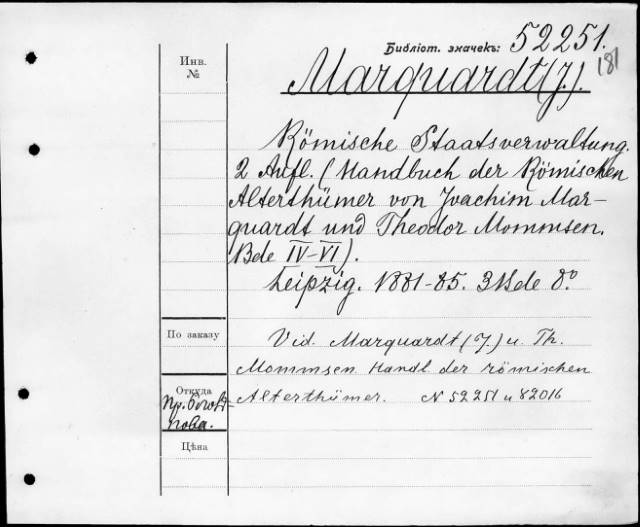 Библіот. значекъ: 52251.
181
Marquardt (J.).
Инв.
№
Römische Staatsverwaltung.
2 Aufl. (Handbuch der Römischen
Alterthümer von Joachim Mar-
quardt und Theodor Mommsen.
Bde IV-VI).
Leipzig. 1881-85. 3 Bde 8°.
По заказу
Vid. Marquardt (J.) u. Th.
Mommsen Handb. der römischen
Alterthümer. N 52251 и 82016
Откуда
Цѣна